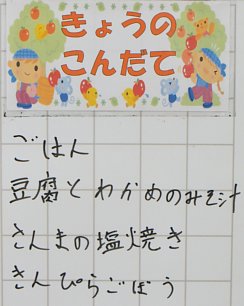 きょうの
こんだて
ごはん
豆腐とわかめのみそ汁
さんまの塩焼き
きんぴらごぼう